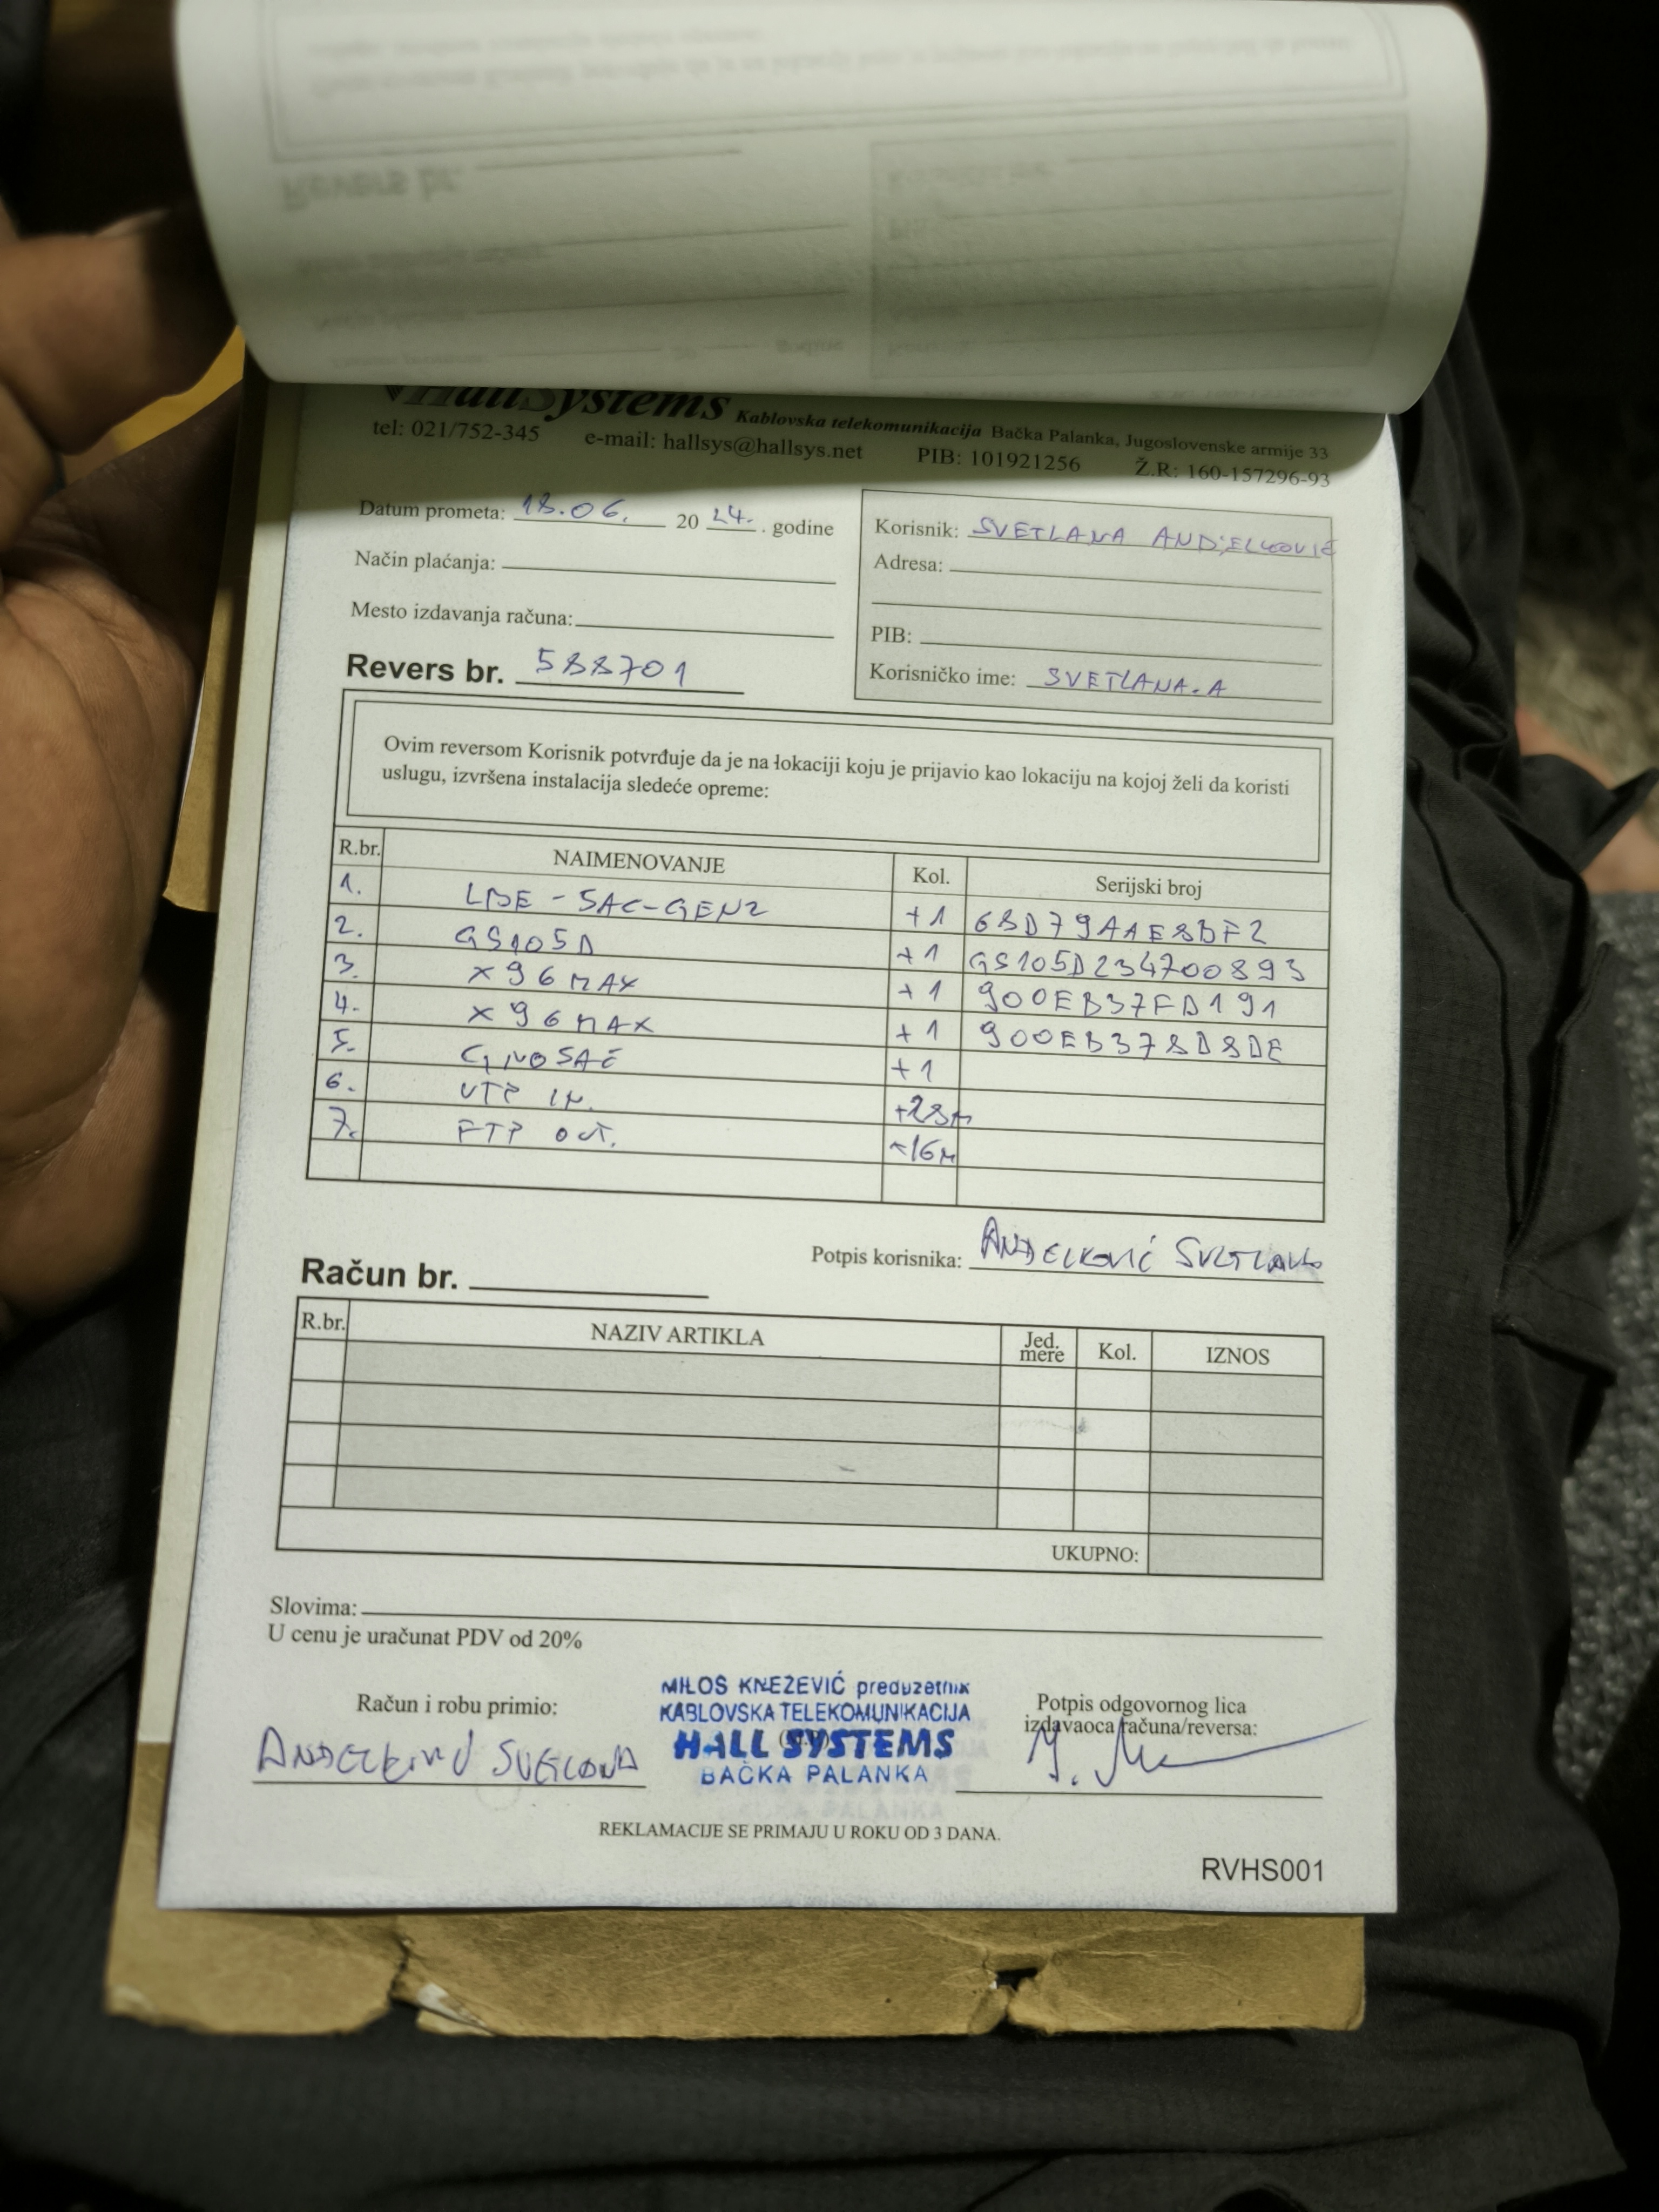 HallSystems Kablovska telekomunikacija Bačka Palanka, Jugoslovenske armije 33
tel: 021/752-345 e-mail: hallsys@hallsys.net PIB: 101921256 Ž.R: 160-157296-93
Datum prometa: 18.06. 20 24. . godine
Način plaćanja:
Mesto izdavanja računa:
Revers br. 588701
Korisnik: SVETLANA ANDJELKOVIĆ
Adresa:
PIB:
Korisničko ime: SVETLANA.A
Ovim reversom Korisnik potvrđuje da je na lokaciji koju je prijavio kao lokaciju na kojoj želi da koristi
uslugu, izvršena instalacija sledeće opreme:
R.br. NAIMENOVANJE Kol. Serijski broj
1. LDE-5AC-GEN2 +1 68D79AAE8BF2
2. GS105D +1 GS105D234700893
3. X96MAX +1 900EB37FD191
4. X96MAX +1 900EB378D8DE
5. G, NOSAČ +1
6. UTP IN. +28m
7. FTP OUT. +16m
Potpis korisnika: ANĐELKOVIĆ SVETLANA
Račun br.
R.br. NAZIV ARTIKLA Jed. mere Kol. IZNOS
UKUPNO:
Slovima:
U cenu je uračunat PDV od 20%
Račun i robu primio:
ANĐELKOVIĆ SVETLANA
MILOŠ KNEŽEVIĆ preduzetnik
KABLOVSKA TELEKOMUNIKACIJA
HALL SYSTEMS
BAČKA PALANKA
Potpis odgovornog lica
izdavaoca računa/reversa:
REKLAMACIJE SE PRIMAJU U ROKU OD 3 DANA.
RVHS001